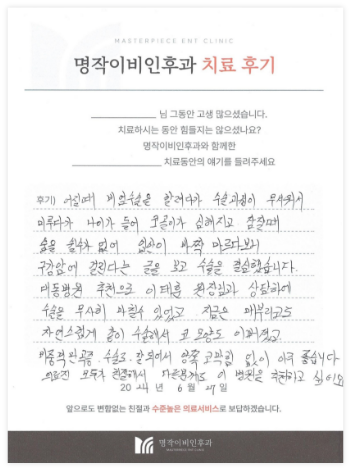 MASTERPIECE ENT CLINIC
명작이비인후과 치료 후기
님 그동안 고생 많으셨습니다.
치료하시는 동안 힘들지는 않으셨나요?
명작이비인후과와 함께한
치료동안의 얘기를 들려주세요
후기) 어릴때 비염수술을 할려다가 수술과정이 무서워서
미루다가 나이가 들어 코골이가 심해지고 잠잘때
숨을 쉴수가 없어 입안이 바짝 마르다보니
구강암에 걸린다는 글을 보고 수술을 결심했습니다.
대동병원 추천으로 이태훈 원장님과 상담하여
수술을 무사히 마칠수 있었고 지금은
자연스럽게 숨이 수술해서 코 모양도 이뻐졌고
비중격만곡증 수술도 잘되어서 양쪽 코막힘 없이 아주 좋습니다
의료진 모두가 친절해서 이 병원을 추천하고 싶어요
20 24년 6월 27일
앞으로도 변함없는 친절과 수준높은 의료서비스로 보답하겠습니다.
명작이비인후과
MASTERPIECE ENT CLINIC